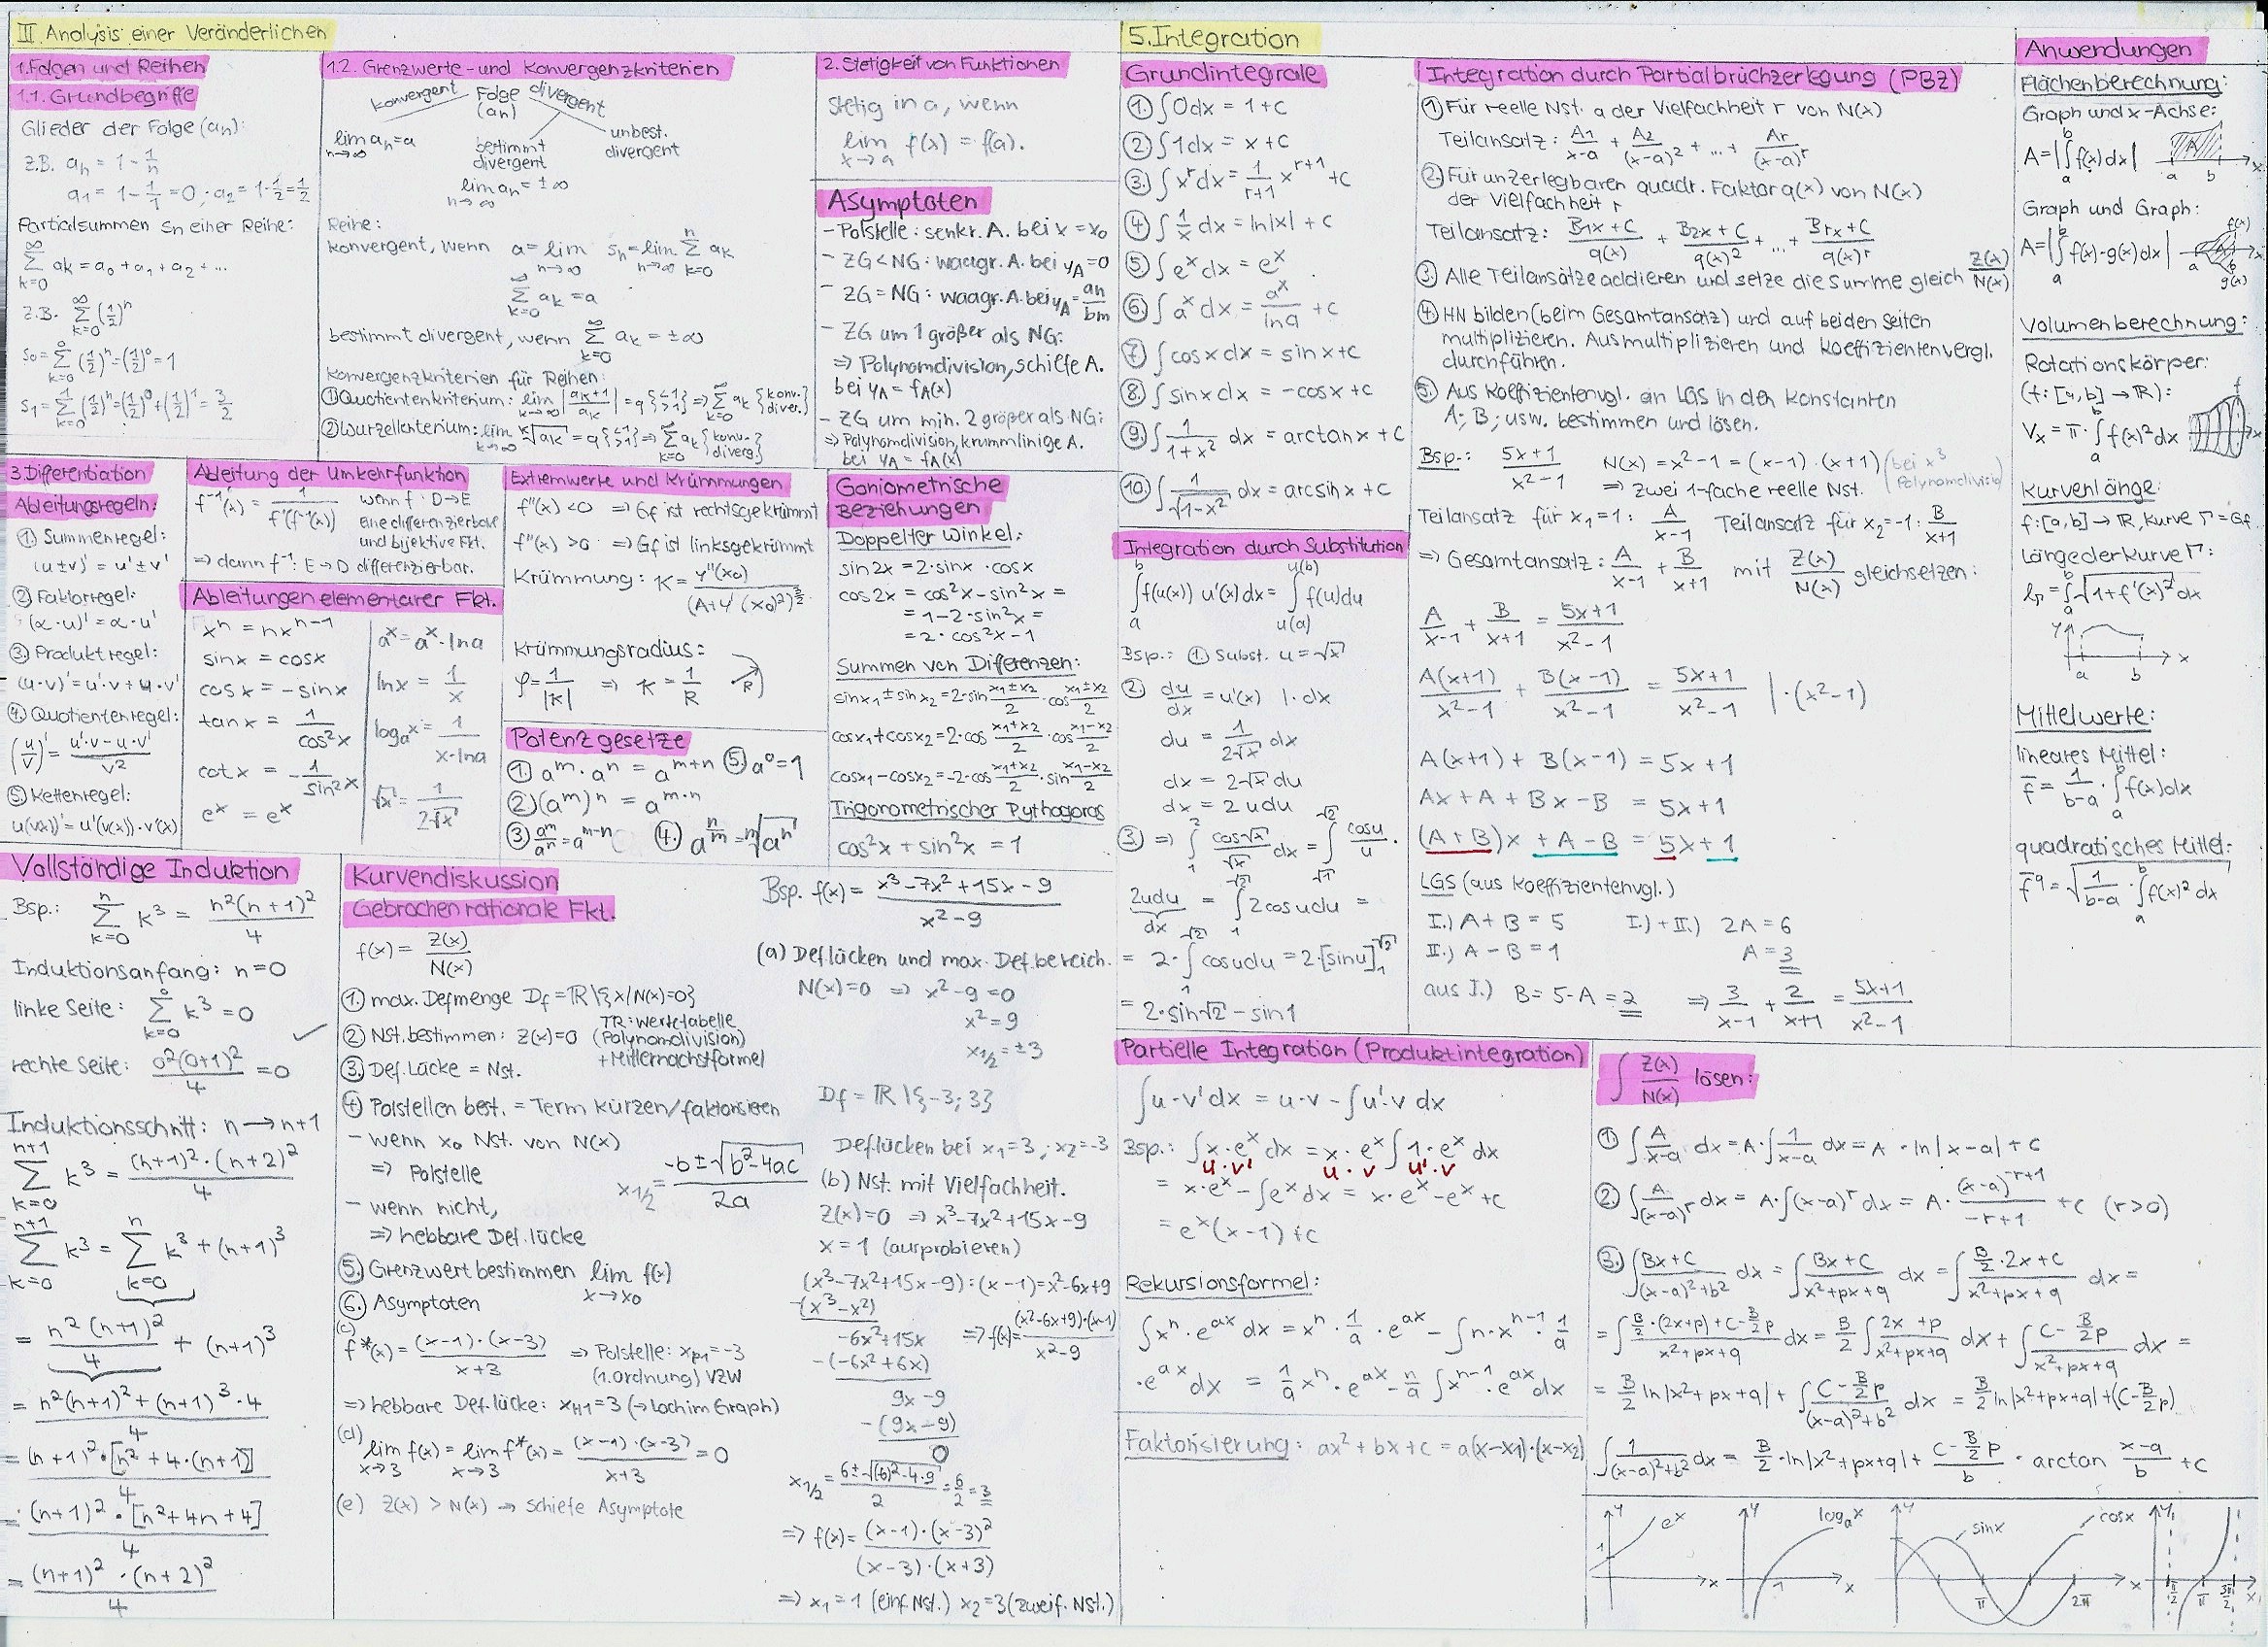 III. Analysis einer Veränderlichen
1. Folgen und Reihen
1.1. Grundbegriffe
Glieder der Folge (an):
z.B. an = 1 - 1/n
a1 = 1 - 1/1 = 0 ; a2 = 1 - 1/2 = 1/2
Partialsummen Sn einer Reihe:
∞∑k=0 ak = a0 + a1 + a2 + ...
z.B. ∞∑k=0 (1/2)^n
S0 = 0∑k=0 (1/2)^n = (1/2)^0 = 1
S1 = 1∑k=0 (1/2)^n = (1/2)^0 + (1/2)^1 = 3/2
1.2. Grenzwerte- und Konvergenzkriterien
konvergent Folge (an) divergent
lim n→∞ an = a
bestimmt divergent
unbest. divergent
lim n→∞ an = ±∞
Reihe:
konvergent, wenn a = lim n→∞ Sn = lim n→∞ n∑k=0 ak
∞∑k=0 ak = a
bestimmt divergent, wenn ∞∑k=0 ak = ±∞
Konvergenzkriterien für Reihen:
① Quotientenkriterium: lim k→∞ |ak+1/ak| = q {<1 >1} ⇒ ∞∑k=0 ak {konv. diver.}
② Wurzelkriterium: lim k→∞ k√ak = q {<1 >1} ⇒ ∞∑k=0 ak {konv. diverg.}
2. Stetigkeit von Funktionen
stetig in a, wenn
lim x→a f(x) = f(a).
Asymptoten
- Polstelle: senkr. A. bei x = x0
- ZG < NG: waagr. A. bei yA = 0
- ZG = NG: waagr. A. bei yA = an/bm
- ZG um 1 größer als NG:
⇒ Polynomdivision, schiefe A.
bei yA = fA(x)
- ZG um min. 2 größer als NG:
⇒ Polynomdivision, krummlinige A.
bei yA = fA(x)
3. Differentiation
Ableitungsregeln:
① Summenregel:
(u±v)' = u' ± v'
② Faktorregel:
(α·u)' = α·u'
③ Produktregel:
(u·v)' = u'·v + u·v'
④ Quotientenregel:
(u/v)' = (u'·v - u·v')/v²
⑤ Kettenregel:
u(v(x))' = u'(v(x))·v'(x)
Ableitung der Umkehrfunktion
f⁻¹'(x) = 1/f'(f⁻¹(x)) wenn f: D→E
eine differenzierbare
und bijektive Fkt.
⇒ dann f⁻¹: E→D differenzierbar.
Ableitungen elementarer Fkt.
x^n = nx^(n-1)
sinx = cosx
cosx = -sinx
tanx = 1/cos²x
cotx = -1/sin²x
e^x = e^x
a^x = a^x · lna
lnx = 1/x
logₐx = 1/(x·lna)
√x = 1/(2√x)
Extremwerte und Krümmungen
f''(x) < 0 ⇒ Gf ist rechtsgekrümmt
f''(x) > 0 ⇒ Gf ist linksgekrümmt
Krümmung: K = y''(x0)/(1+y'(x0)²)^(3/2)
Krümmungsradius:
ρ = 1/|K| ⇒ K = 1/R R
Potenzgesetze
① a^m · a^n = a^(m+n) ⑤ a^0 = 1
② (a^m)^n = a^(m·n)
③ a^m/a^n = a^(m-n) ④ a^(n/m) = m√a^n
Goniometrische Beziehungen
Doppelter Winkel:
sin2x = 2·sinx·cosx
cos2x = cos²x - sin²x =
= 1 - 2·sin²x =
= 2·cos²x - 1
Summen von Differenzen:
sinx1 ± sinx2 = 2·sin (x1±x2)/2 · cos (x1±x2)/2
cosx1 + cosx2 = 2·cos (x1+x2)/2 · cos (x1-x2)/2
cosx1 - cosx2 = -2·cos (x1+x2)/2 · sin (x1-x2)/2
Trigonometrischer Pythagoras
cos²x + sin²x = 1
Vollständige Induktion
Bsp.: n∑k=0 k³ = n²(n+1)²/4
Induktionsanfang: n=0
linke Seite: 0∑k=0 k³ = 0
rechte Seite: 0²(0+1)²/4 = 0 ✓
Induktionsschritt: n→n+1
n+1∑k=0 k³ = (n+1)²·(n+2)²/4
n+1∑k=0 k³ = n∑k=0 k³ + (n+1)³
= n²(n+1)²/4 + (n+1)³
= (n²(n+1)² + (n+1)³·4)/4
= (n+1)²·[n² + 4·(n+1)]/4
= (n+1)²·[n²+4n+4]/4
= (n+1)²·(n+2)²/4
Kurvendiskussion
Gebrochen rationale Fkt.
f(x) = Z(x)/N(x)
① max. Defmenge Df = ℝ\{x/N(x)=0}
② Nst. bestimmen: Z(x)=0 (TR: Wertetabelle Polynomdivision)
+ Mitternachtsformel
③ Def. Lücke = Nst.
④ Polstellen best. = Term kürzen/faktorisieren
- wenn x0 Nst. von N(x)
⇒ Polstelle
x1/2 = (-b±√(b²-4ac))/2a
- wenn nicht,
⇒ hebbare Def. lücke
⑤ Grenzwert bestimmen lim x→x0 f(x)
⑥ Asymptoten
(c) f*(x) = (x-1)·(x-3)/(x+3) ⇒ Polstelle: xp1 = -3
(1. Ordnung) VZW
⇒ hebbare Def. lücke: xH1 = 3 (→ Loch im Graph)
(d) lim x→3 f(x) = lim x→3 f*(x) = (x-1)·(x-3)/(x+3) = 0
(e) Z(x) > N(x) → schiefe Asymptote
Bsp. f(x) = (x³-7x²+15x-9)/(x²-9)
(a) Def. lücken und max. Def. bereich.
N(x)=0 ⇒ x²-9=0
x²=9
x1/2 = ±3
Df = ℝ\{-3; 3}
Def. lücken bei x1=3 ; x2=-3
(b) Nst. mit Vielfachheit.
Z(x)=0 ⇒ x³-7x²+15x-9
x=1 (ausprobieren)
(x³-7x²+15x-9):(x-1) = x²-6x+9
-(x³-x²)
-6x²+15x ⇒ f(x) = (x²-6x+9)·(x-1)/(x²-9)
-(-6x²+6x)
9x-9
-(9x-9)
0
x1/2 = (6±√((-6)²-4·9))/2 = 6/2 = 3
⇒ f(x) = (x-1)·(x-3)²/((x-3)·(x+3))
⇒ x1=1 (einf. Nst.) x2=3 (zweif. Nst.)
5. Integration
Grundintegrale
① ∫0dx = 1+C
② ∫1dx = x+C
③ ∫x^r dx = 1/(r+1) x^(r+1) + C
④ ∫1/x dx = ln|x| + C
⑤ ∫e^x dx = e^x
⑥ ∫a^x dx = a^x/lna + C
⑦ ∫cosxdx = sinx+C
⑧ ∫sinxdx = -cosx+C
⑨ ∫1/(1+x²) dx = arctanx + C
⑩ ∫1/√(1-x²) dx = arcsinx + C
Integration durch Substitution
b∫a f(u(x)) u'(x)dx = u(b)∫u(a) f(u)du
Bsp.: ① Subst. u = √x
② du/dx = u'(x) |·dx
du = 1/(2√x) dx
dx = 2√x du
dx = 2udu
③ ⇒ 2∫1 cos√x/√x dx = √2∫√1 cosu/u ·
2udu = √2∫1 2cosudu =
dx
= 2·√2∫1 cosudu = 2·[sinu]√2 1
= 2·sin√2 - sin1
Integration durch Partialbruchzerlegung (PBZ)
① Für reelle Nst. a der Vielfachheit r von N(x)
Teilansatz: A1/(x-a) + A2/(x-a)² + ... + Ar/(x-a)^r
② Für unzerlegbaren quadr. Faktor q(x) von N(x)
der Vielfachheit r
Teilansatz: (B1x+C)/q(x) + (B2x+C)/q(x)² + ... + (Brx+C)/q(x)^r
③ Alle Teilansätze addieren und setze die Summe gleich Z(x)/N(x)
④ HN bilden (beim Gesamtansatz) und auf beiden Seiten
multiplizieren. Ausmultiplizieren und Koeffizientenvergl.
durchführen.
⑤ Aus Koeffizientenvgl. ein LGS in den Konstanten
A; B; usw. bestimmen und lösen.
Bsp.: (5x+1)/(x²-1) N(x) = x²-1 = (x-1)·(x+1) (bei x³ Polynomdivisio)
⇒ zwei 1-fache reelle Nst.
Teilansatz für x1=1: A/(x-1) Teilansatz für x2=-1: B/(x+1)
⇒ Gesamtansatz: A/(x-1) + B/(x+1) mit Z(x)/N(x) gleichsetzen:
A/(x-1) + B/(x+1) = (5x+1)/(x²-1)
A(x+1)/(x²-1) + B(x-1)/(x²-1) = (5x+1)/(x²-1) |·(x²-1)
A(x+1) + B(x-1) = 5x+1
Ax + A + Bx - B = 5x+1
(A+B)x + A - B = 5x+1
LGS (aus Koeffizientenvgl.)
I.) A + B = 5 I.)+II.) 2A = 6
II.) A - B = 1 A = 3
aus I.) B = 5-A = 2 ⇒ 3/(x-1) + 2/(x+1) = (5x+1)/(x²-1)
Anwendungen
Flächenberechnung:
Graph und x-Achse:
A = |b∫a f(x)dx| A a b x
Graph und Graph:
A = |b∫a f(x)-g(x)dx| f(x) a b x g(x)
Volumenberechnung:
Rotationskörper:
(f: [a,b] → ℝ): f
Vx = π·b∫a f(x)²dx x
Kurvenlänge:
f: [a,b] → ℝ, Kurve Γ = Gf
Länge der Kurve Γ:
lΓ = b∫a √(1+f'(x)²) dx
y a b x
Mittelwerte:
lineares Mittel:
f̄ = 1/(b-a) · b∫a f(x)dx
quadratisches Mittel:
f̄q = √(1/(b-a) · b∫a f(x)²dx)
Partielle Integration (Produktintegration)
∫u·v'dx = u·v - ∫u'·v dx
Bsp.: ∫x·e^x dx = x·e^x ∫1·e^x dx
u·v' u·v u'·v
= x·e^x - ∫e^x dx = x·e^x - e^x + C
= e^x(x-1) + C
Rekursionsformel:
∫x^n·e^(ax) dx = x^n · 1/a · e^(ax) - ∫n·x^(n-1) · 1/a
·e^(ax) dx = 1/a x^n · e^(ax) - n/a ∫x^(n-1) · e^(ax) dx
Faktorisierung: ax² + bx + c = a(x-x1)·(x-x2)
∫Z(x)/N(x) lösen:
① ∫A/(x-a) dx = A·∫1/(x-a) dx = A · ln|x-a| + C
② ∫A/(x-a)^r dx = A·∫(x-a)^r dx = A · (x-a)^(-r+1)/(-r+1) + C (r>0)
③ ∫(Bx+C)/((x-a)²+b²) dx = ∫(Bx+C)/(x²+px+q) dx = ∫(B/2·2x+C)/(x²+px+q) dx =
= ∫(B/2·(2x+p)+C-B/2p)/(x²+px+q) dx = B/2 ∫(2x+p)/(x²+px+q) dx + ∫(C-B/2p)/(x²+px+q) dx =
= B/2 ln|x²+px+q| + ∫(C-B/2p)/((x-a)²+b²) dx = B/2 ln|x²+px+q| + (C-B/2p)
∫1/((x-a)²+b²) dx = B/2·ln|x²+px+q| + (C-B/2p)/b · arctan (x-a)/b + C
y e^x 1 x
y logₐx 1 x
y sinx cosx π 2π x
y π/2 π 3π/2 x